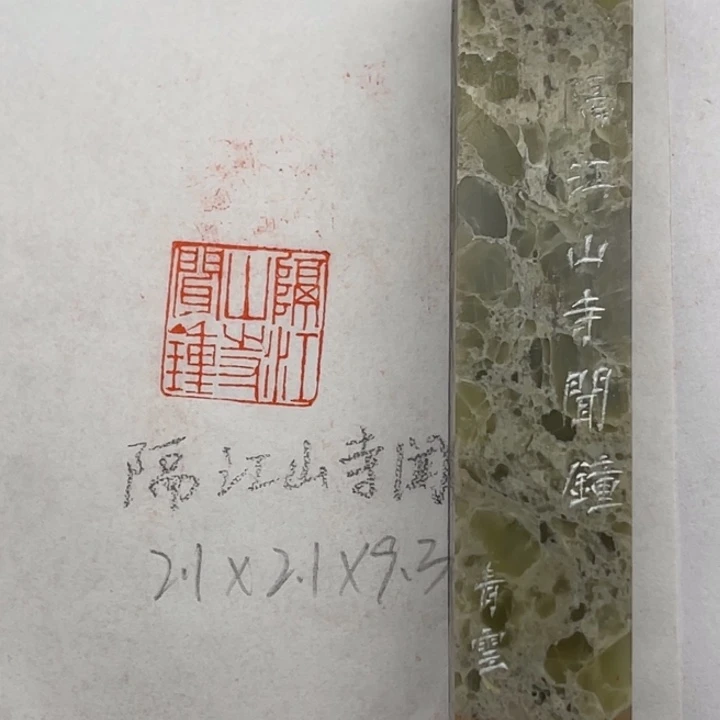 隔江
山寺
聞鐘
隔江山寺聞
2.1×2.1×9.3
隔江山寺聞鐘
青雲